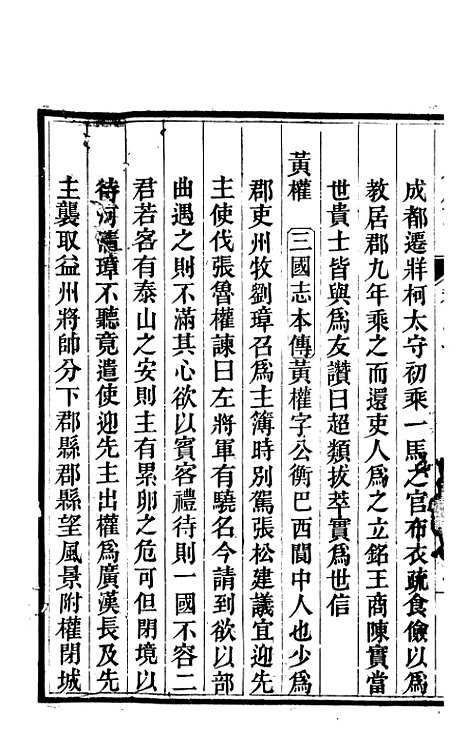 成都遷牂柯太守初乘一馬之官布衣疏食儉以爲
教居郡九年乘之而還吏人爲之立銘王商陳實當
世貴士皆與爲友讚曰超類拔萃實爲世信
黃權 三國志本傳黃權字公衡巴西閬中人也少爲
郡吏州牧劉璋召爲主簿時別駕張松建議宜迎先
主使伐張魯權諫曰左將軍有驍名今請到欲以部
曲遇之則不滿其心欲以賓客禮待則一國不容二
君若客有泰山之安則主有累卵之危可但閉境以
待河清璋不聽竟遣使迎先主出權爲廣漢長及先
主襲取益州將帥分下郡縣郡縣望風景附權閉城